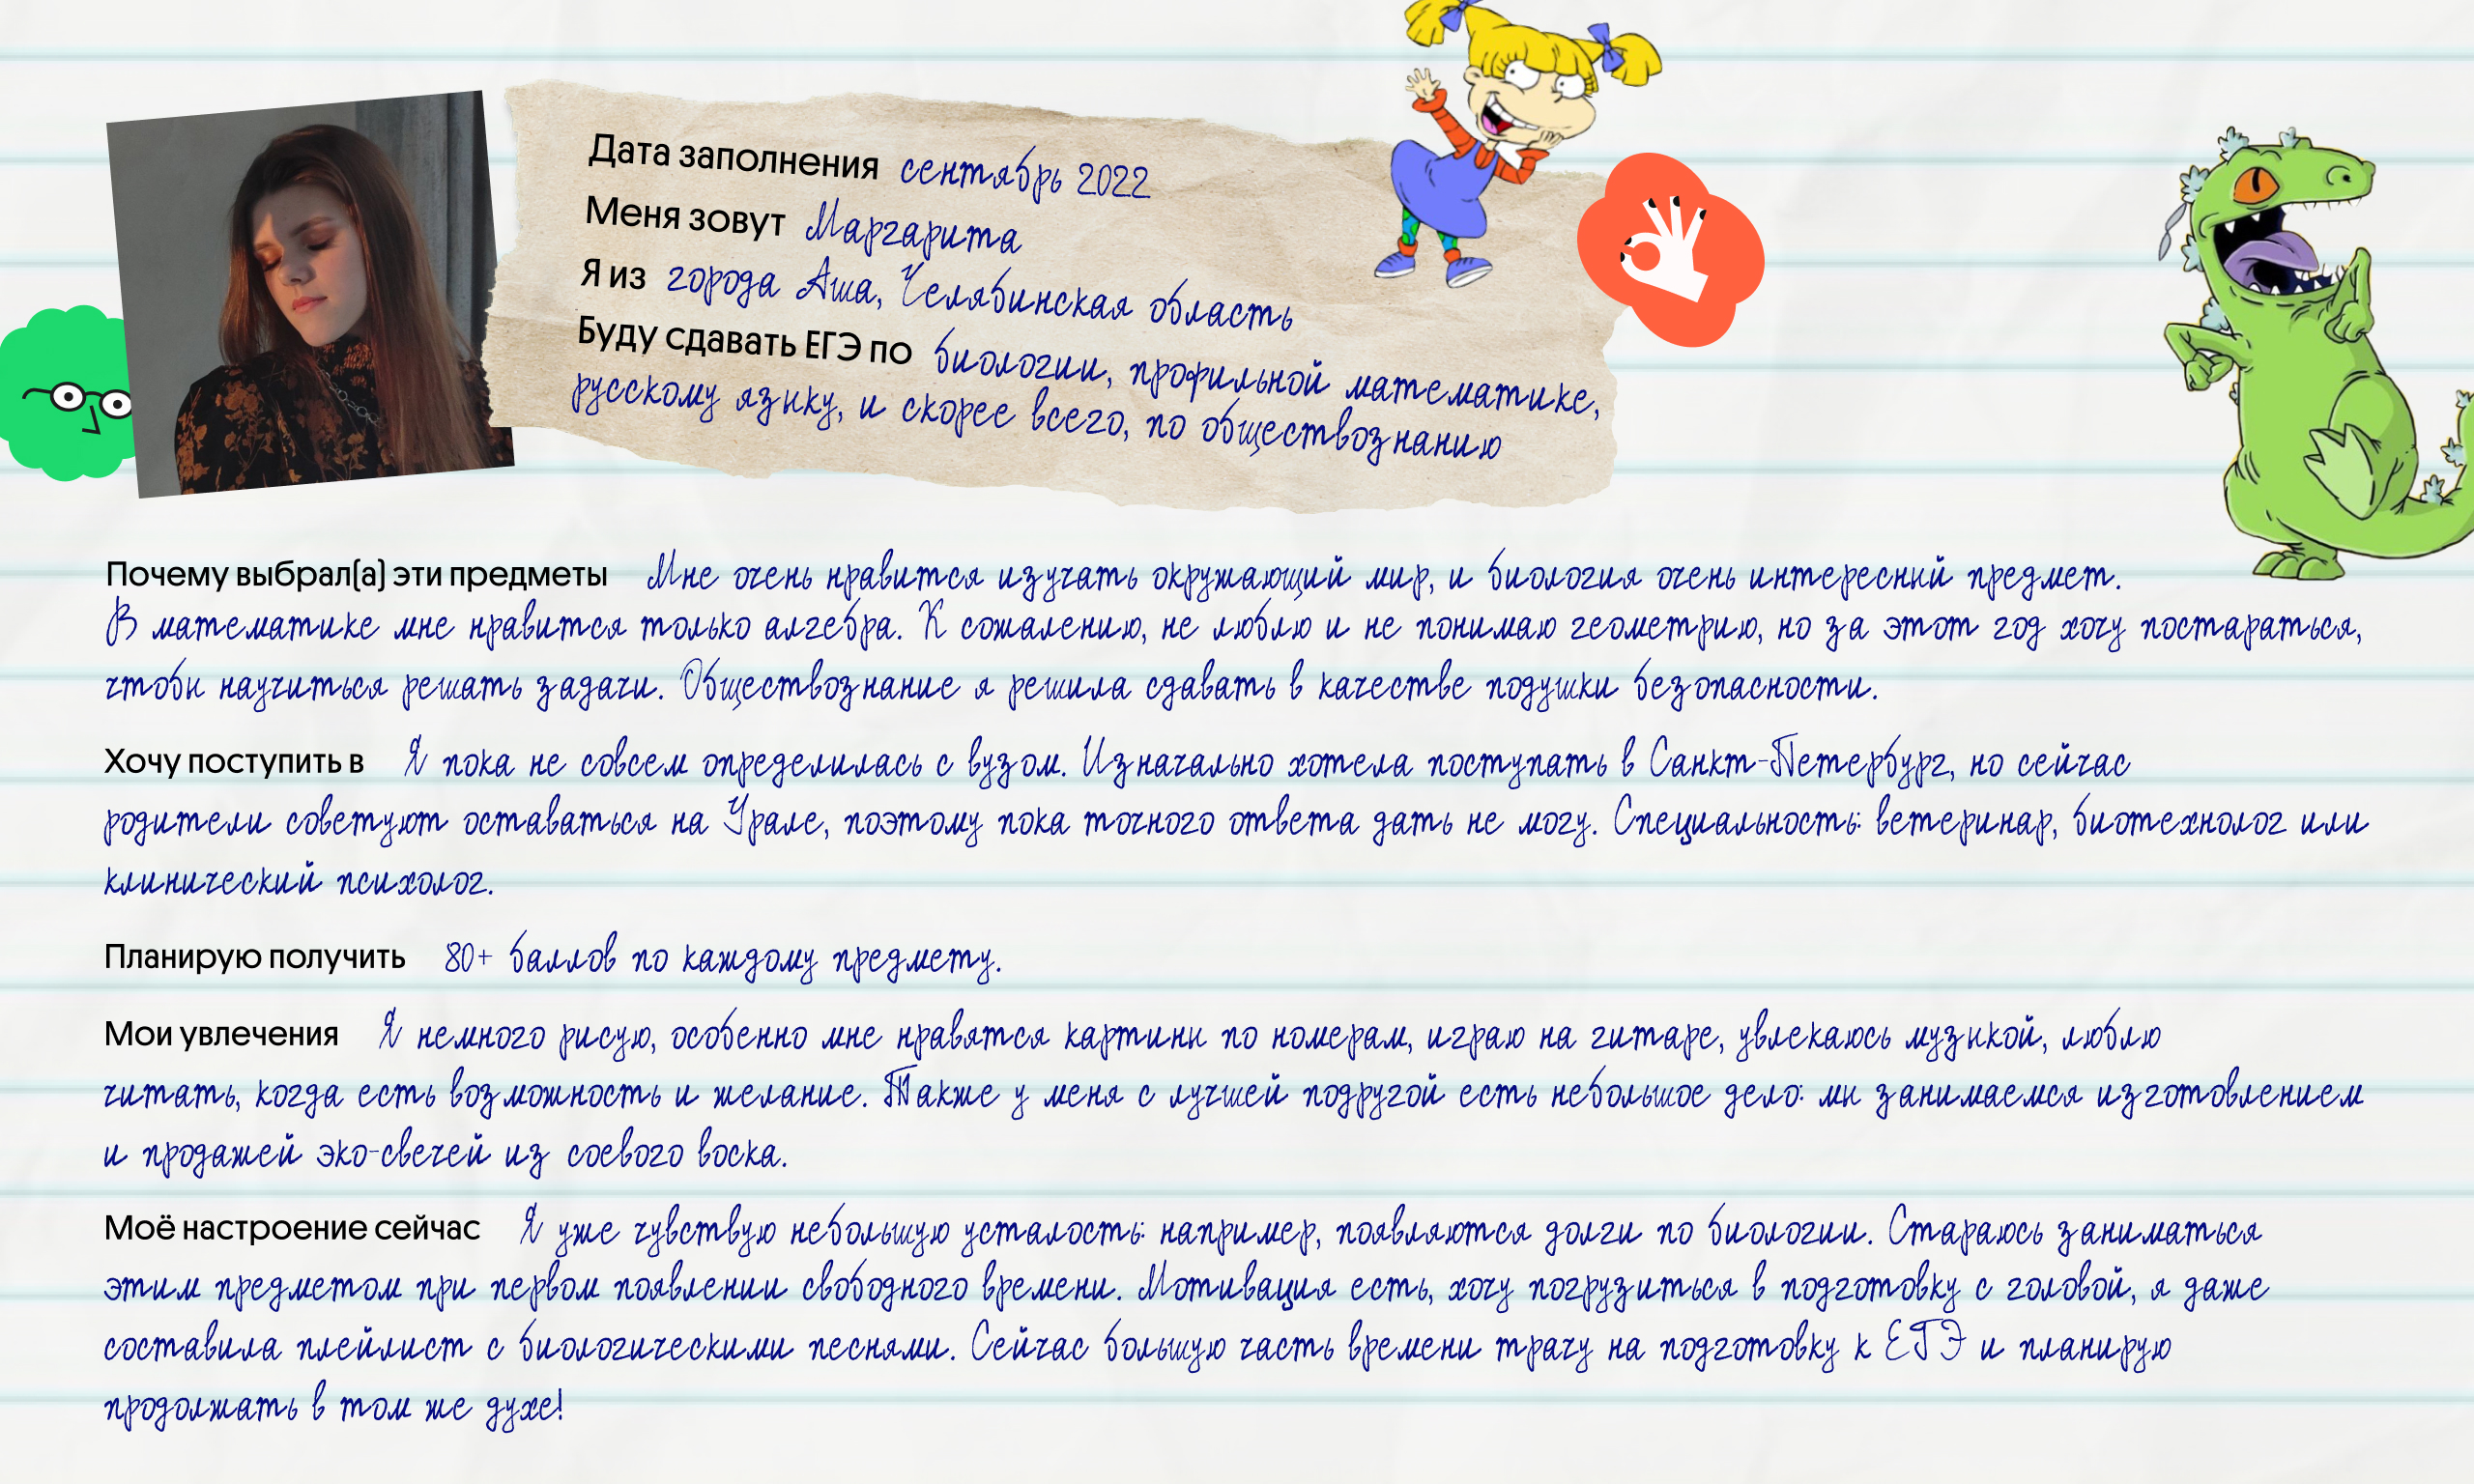 Дата заполнения сентябрь 2022
Меня зовут Маргарита
Я из города Аша, Челябинская область
Буду сдавать ЕГЭ по биологии, профильной математике,
русскому языку, и скорее всего, по обществознанию
Почему выбрал(а) эти предметы Мне очень нравится изучать окружающий мир, и биология очень интересный предмет.
В математике мне нравится только алгебра. К сожалению, не люблю и не понимаю геометрию, но за этот год хочу постараться,
чтобы научиться решать задачи. Обществознание я решила сдавать в качестве подушки безопасности.
Хочу поступить в Я пока не совсем определилась с вузом. Изначально хотела поступать в Санкт-Петербург, но сейчас
родители советуют оставаться на Урале, поэтому пока точного ответа дать не могу. Специальность: ветеринар, биотехнолог или
клинический психолог.
Планирую получить 80+ баллов по каждому предмету.
Мои увлечения Я немного рисую, особенно мне нравятся картины по номерам, играю на гитаре, увлекаюсь музыкой, люблю
читать, когда есть возможность и желание. Также у меня с лучшей подругой есть небольшое дело: мы занимаемся изготовлением
и продажей эко-свечей из соевого воска.
Моё настроение сейчас Я уже чувствую небольшую усталость: например, появляются долги по биологии. Стараюсь заниматься
этим предметом при первом появлении свободного времени. Мотивация есть, хочу погрузиться в подготовку с головой, я даже
составила плейлист с биологическими песнями. Сейчас большую часть времени трачу на подготовку к ЕГЭ и планирую
продолжать в том же духе!